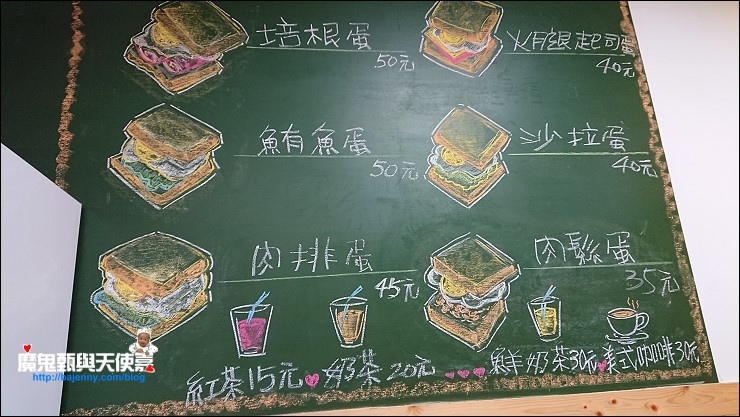 培根蛋
50元
火腿起司蛋
40元
鮪魚蛋
50元
沙拉蛋
40元
肉排蛋
45元
肉鬆蛋
35元
紅茶15元 奶茶20元 鮮奶茶30元 美式咖啡30元
魔鬼甄與天使嘉
http://bajenny.com/blog